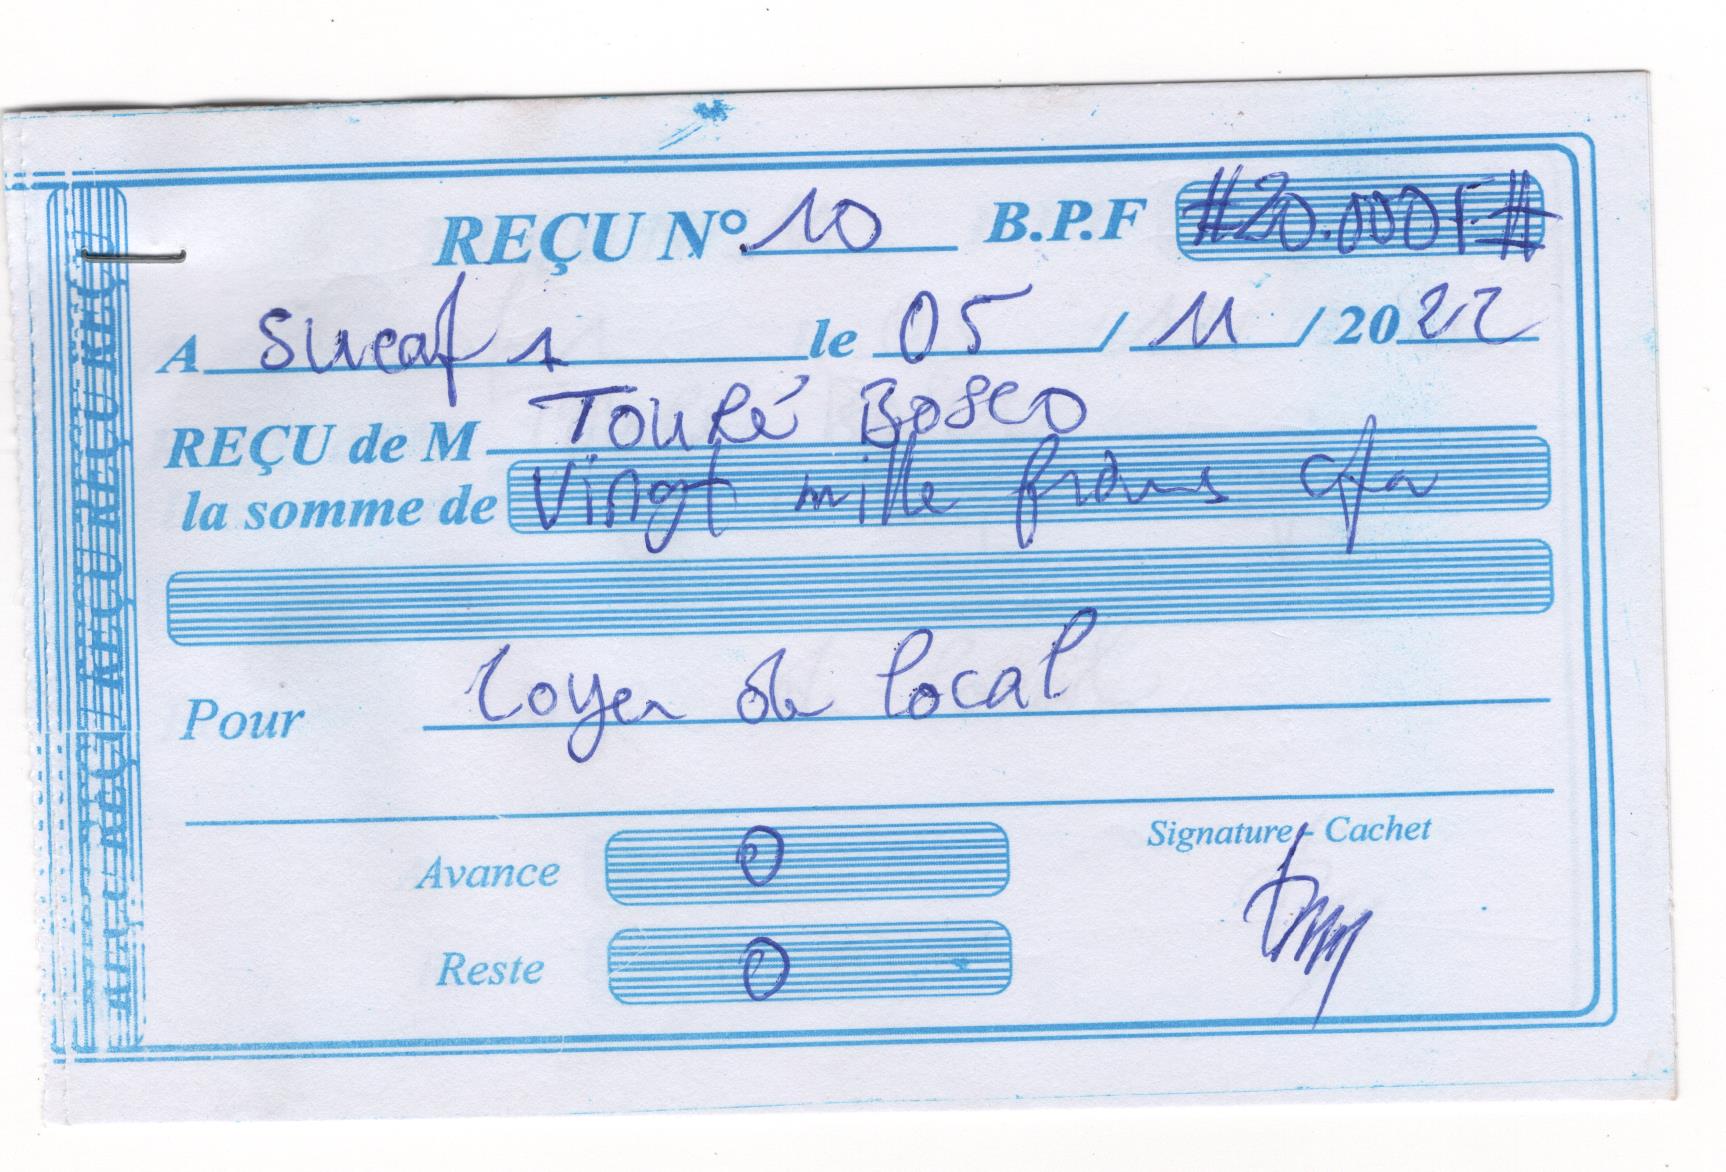 REÇU N° 10 B.P.F #20.000F#
A Sucaf 1 le 05 / 11 / 2022
REÇU de M TOURÉ BOSCO
la somme de Vingt mille francs cfa
Pour Loyer de local
Signature - Cachet
Avance 0
Reste 0